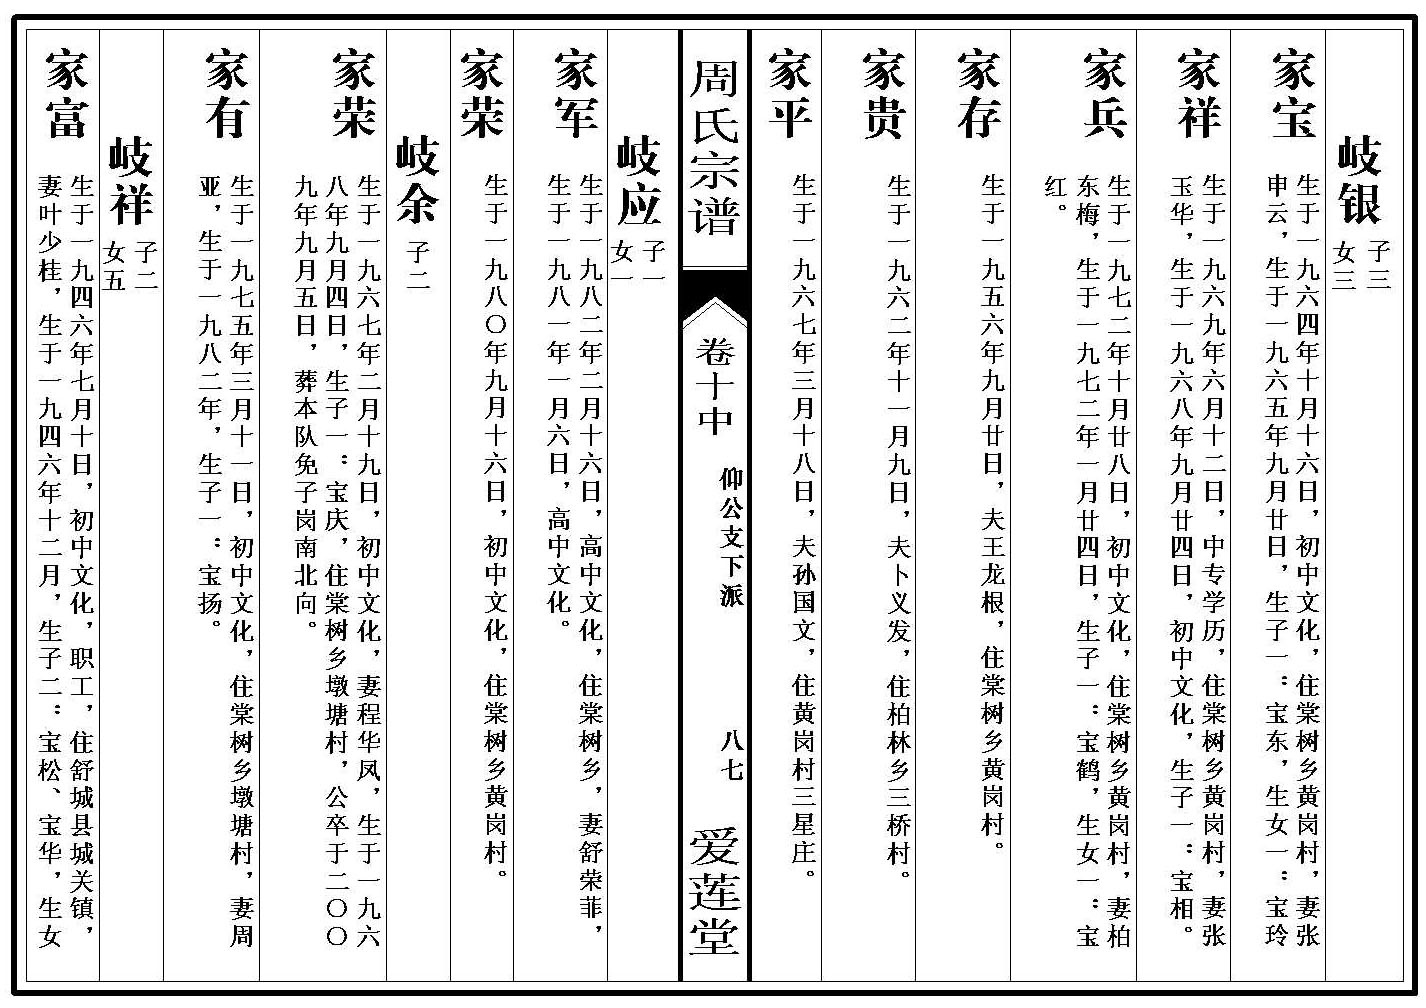 岐银
子三
女三
家宝
生于一九六四年十月十六日，初中文化，住棠树乡黄岗村，妻张
申云，生于一九六五年九月廿日，生子一：宝东，生女一：宝玲
家祥
生于一九六九年六月十二日，中专学历，住棠树乡黄岗村，妻张
玉华，生于一九六八年九月廿四日，初中文化，生子一：宝相。
家兵
生于一九七二年十月廿八日，初中文化，住棠树乡黄岗村，妻柏
东梅，生于一九七二年一月廿四日，生子一：宝鹤，生女一：宝
红。
家存
生于一九五六年九月廿日，夫王龙根，住棠树乡黄岗村。
家贵
生于一九六二年十一月九日，夫卜义发，住柏林乡三桥村。
家平
生于一九六七年三月十八日，夫孙国文，住黄岗村三星庄。
周氏宗谱
卷十中
仰公支下派
八七
爱莲堂
岐应
子一
女一
家军
生于一九八二年二月十六日，高中文化，住棠树乡，妻舒荣菲，
生于一九八一年一月六日，高中文化。
家荣
生于一九八〇年九月十六日，初中文化，住棠树乡黄岗村。
岐余
子二
家荣
生于一九六七年二月十九日，初中文化，妻程华凤，生于一九六
八年九月四日，生子一：宝庆，住棠树乡墩塘村，公卒于二〇〇
九年九月五日，葬本队免子岗南北向。
家有
生于一九七五年三月十一日，初中文化，住棠树乡墩塘村，妻周
亚，生于一九八二年，生子一：宝扬。
岐祥
子二
女五
家富
生于一九四六年七月十日，初中文化，职工，住舒城县城关镇，
妻叶少桂，生于一九四六年十二月，生子二：宝松、宝华，生女